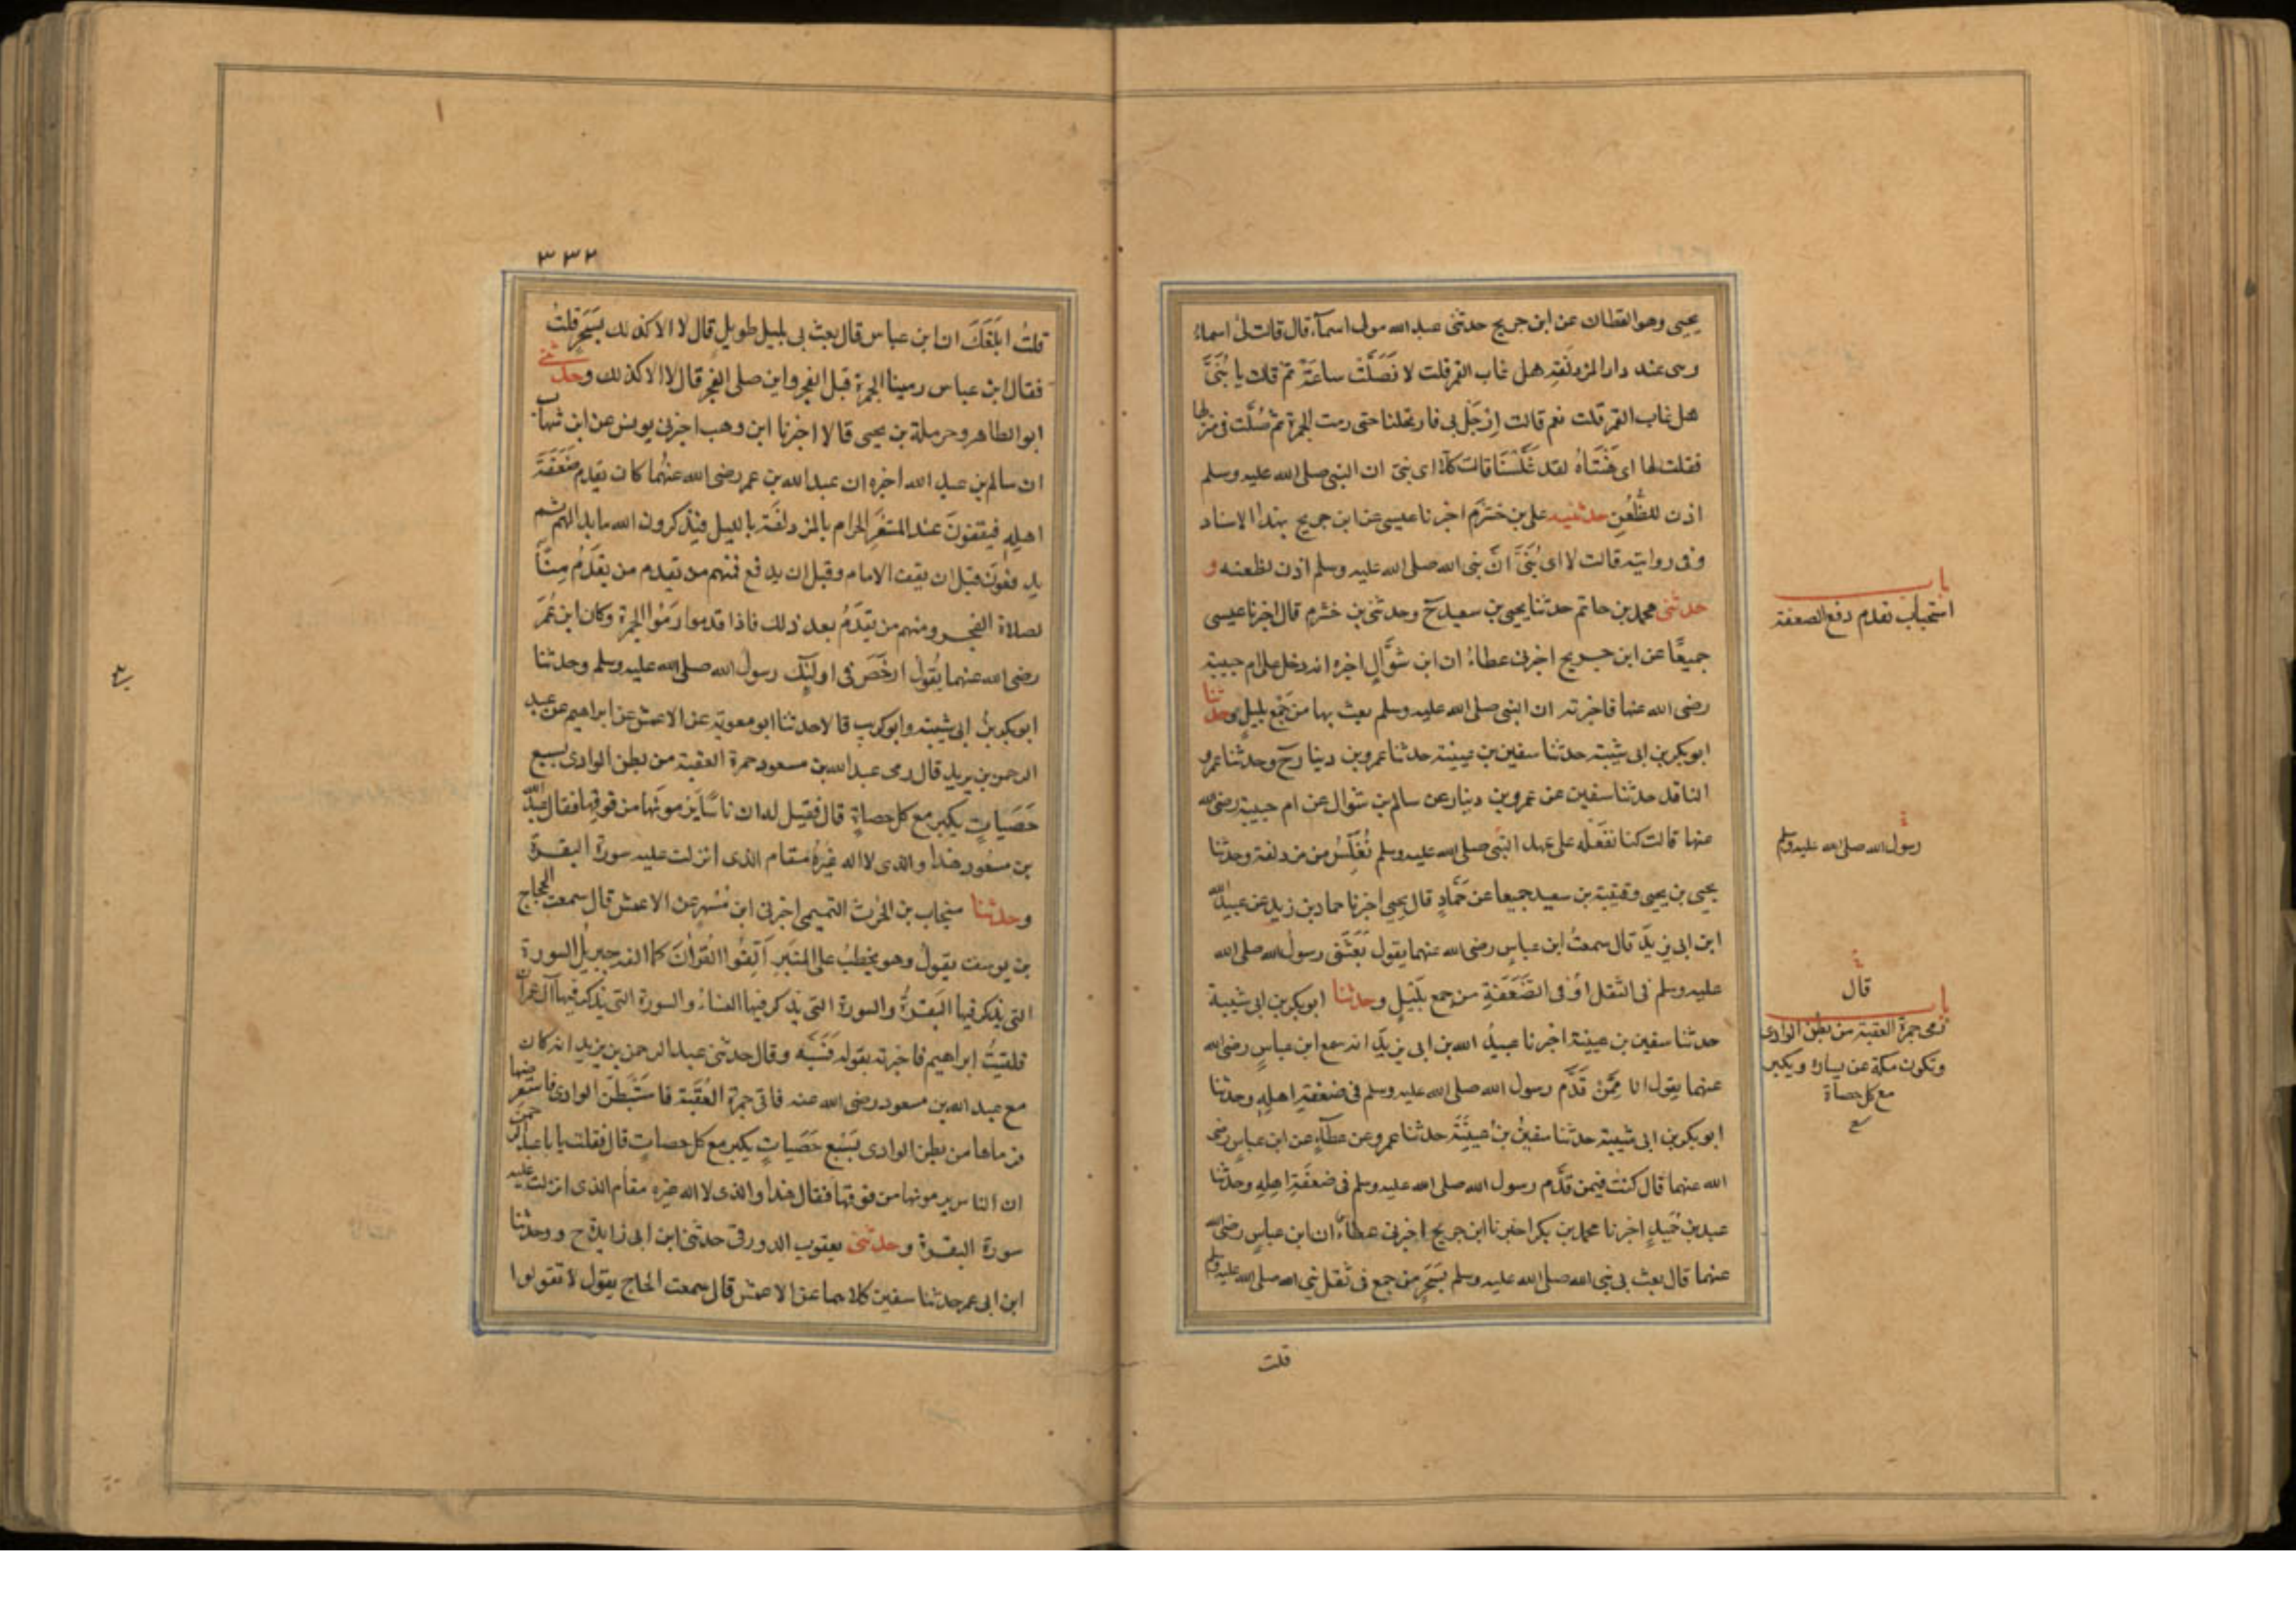 يحيى وهو القطان عن ابن جريج حدثنى عبد الله مولى اسمآء قال قالت لى اسماء
وهى عند دار المزدلفة هل غاب القمر قلت لا فصلت ساعة ثم قالت يا بنى
هل غاب القمر قلت نعم قالت ارحل بى فارتحلنا حتى رمت الجمرة ثم صلت فى منزلها
فقلت لها اى هنتاه لقد غلسنا قالت كلا اى بنى ان النبى صلى الله عليه وسلم
اذن للظعن حدثنيه على بن خشرم اخبرنا عيسى عن ابن جريج بهذا الاسناد
وفى روايته قالت لا اى بنى ان نبى الله صلى الله عليه وسلم اذن لظعنه و
حدثنى محمد بن حاتم حدثنا يحيى بن سعيد ح وحدثنى بن خشرم قال اخبرنا عيسى
جميعا عن ابن جريج اخبرنى عطاء ان ابن شوال اخبره انه دخل على ام حبيبة
رضى الله عنها فاخبرته ان النبى صلى الله عليه وسلم بعث بها من جمع بليل وحدثنا
ابو بكر بن ابى شيبة حدثنا سفين بن عيينة حدثنا عمرو بن دينار ح وحدثنا عمرو
الناقد حدثنا سفين عن عمرو بن دينار عن سالم بن شوال عن ام حبيبة رضى الله
عنها قالت كنا نفعله على عهد النبى صلى الله عليه وسلم نغلس من مزدلفة وحدثنا
يحيى بن يحيى وقتيبة بن سعيد جميعا عن حماد قال يحيى اخبرنا حماد بن زيد عن عبيد الله
ابن ابى يزيد قال سمعت ابن عباس رضى الله عنهما يقول بعثنى رسول الله صلى الله
عليه وسلم فى الثقل او فى الضعفة من جمع بليل وحدثنا ابو بكر بن ابى شيبة
حدثنا سفين بن عيينة اخبرنا عبيد الله بن ابى يزيد انه سمع ابن عباس رضى الله
عنهما يقول انا ممن قدم رسول الله صلى الله عليه وسلم فى ضعفة اهله وحدثنا
ابو بكر بن ابى شيبة حدثنا سفين بن عيينة حدثنا عمرو عن عطآء عن ابن عباس رضى
الله عنهما قال كنت فيمن قدم رسول الله صلى الله عليه وسلم فى ضعفة اهله وحدثنا
عبد بن حميد اخبرنا محمد بن بكر اخبرنا ابن جريج اخبرنى عطاء ان ابن عباس رضى الله
عنهما قال بعث بى نبى الله صلى الله عليه وسلم بسحر من جمع فى ثقل نبى الله صلى الله عليه وسلم
قلت
باب
استحباب تقدم دفع الضعفة
رسول الله صلى الله عليه وسلم
قال
باب
رمى جمرة العقبة من بطن الوادى
وتكون مكة عن يساره ويكبر
مع كل حصاة
٣٣٢
قلت ابلغك ان ابن عباس قال بعث بى بليل طويل قال لا الا كذلك بسحر قلت
فقال ابن عباس رمينا الجمرة قبل الفجر واين صلى الفجر قال لا الا كذلك وحدثنى
ابو الطاهر وحرملة بن يحيى قالا اخبرنا ابن وهب اخبرنى يونس عن ابن شهاب
ان سالم بن عبد الله اخبره ان عبد الله بن عمر رضى الله عنهما كان يقدم ضعفة
اهله فيقفون عند المشعر الحرام بالمزدلفة بالليل فيذكرون الله ما بدا لهم ثم
يدفعون قبل ان يقف الامام وقبل ان يدفع فمنهم من تقدم من يقدم منًا
لصلاة الفجر ومنهم من يقدم بعد ذلك فاذا قدموا رموا الجمرة وكان ابن عمر
رضى الله عنهما يقول ارخص فى اولئك رسول الله صلى الله عليه وسلم وحدثنا
ابو بكر بن ابى شيبة وابو كريب قالا حدثنا ابو معوية عن الاعمش عن ابراهيم عن عبد
الرحمن بن يزيد قال رمى عبد الله بن مسعود جمرة العقبة من بطن الوادى بسبع
حصيات يكبر مع كل حصاة قال فقيل له ان ناسا يرمونها من فوقها فقال عبد الله
بن مسعود هذا والذى لا اله غيره مقام الذى انزلت عليه سورة البقرة
وحدثنا منجاب بن الحرث التميمى اخبرنى ابن مسهر عن الاعمش قال سمعت الحجاج
بن يوسف يقول وهو يخطب على المنبر الفوا القرآن كما الفه جبريل السورة
التى يذكر فيها البقرة والسورة التى يذكر فيها النساء والسورة التى يذكر فيها آل عمران
فلقيت ابراهيم فاخبرته بقوله فسبه وقال حدثنى عبد الرحمن بن يزيد انه كان
مع عبد الله بن مسعود رضى الله عنه فاتى جمرة العقبة فاستبطن الوادى فاستعرضها
فرماها من بطن الوادى بسبع حصيات يكبر مع كل حصات قال فقلت يا ابا عبد الرحمن
ان الناس يرمونها من فوقها فقال هذا والذى لا اله غيره مقام الذى انزلت عليه
سورة البقرة وحدثنى يعقوب الدورقى حدثنى ابن ابى زايدة ح ووحدثنا
ابن ابى عمر حدثنا سفين كلاهما عن الاعمش قال سمعت الحاج يقول لا تقولوا